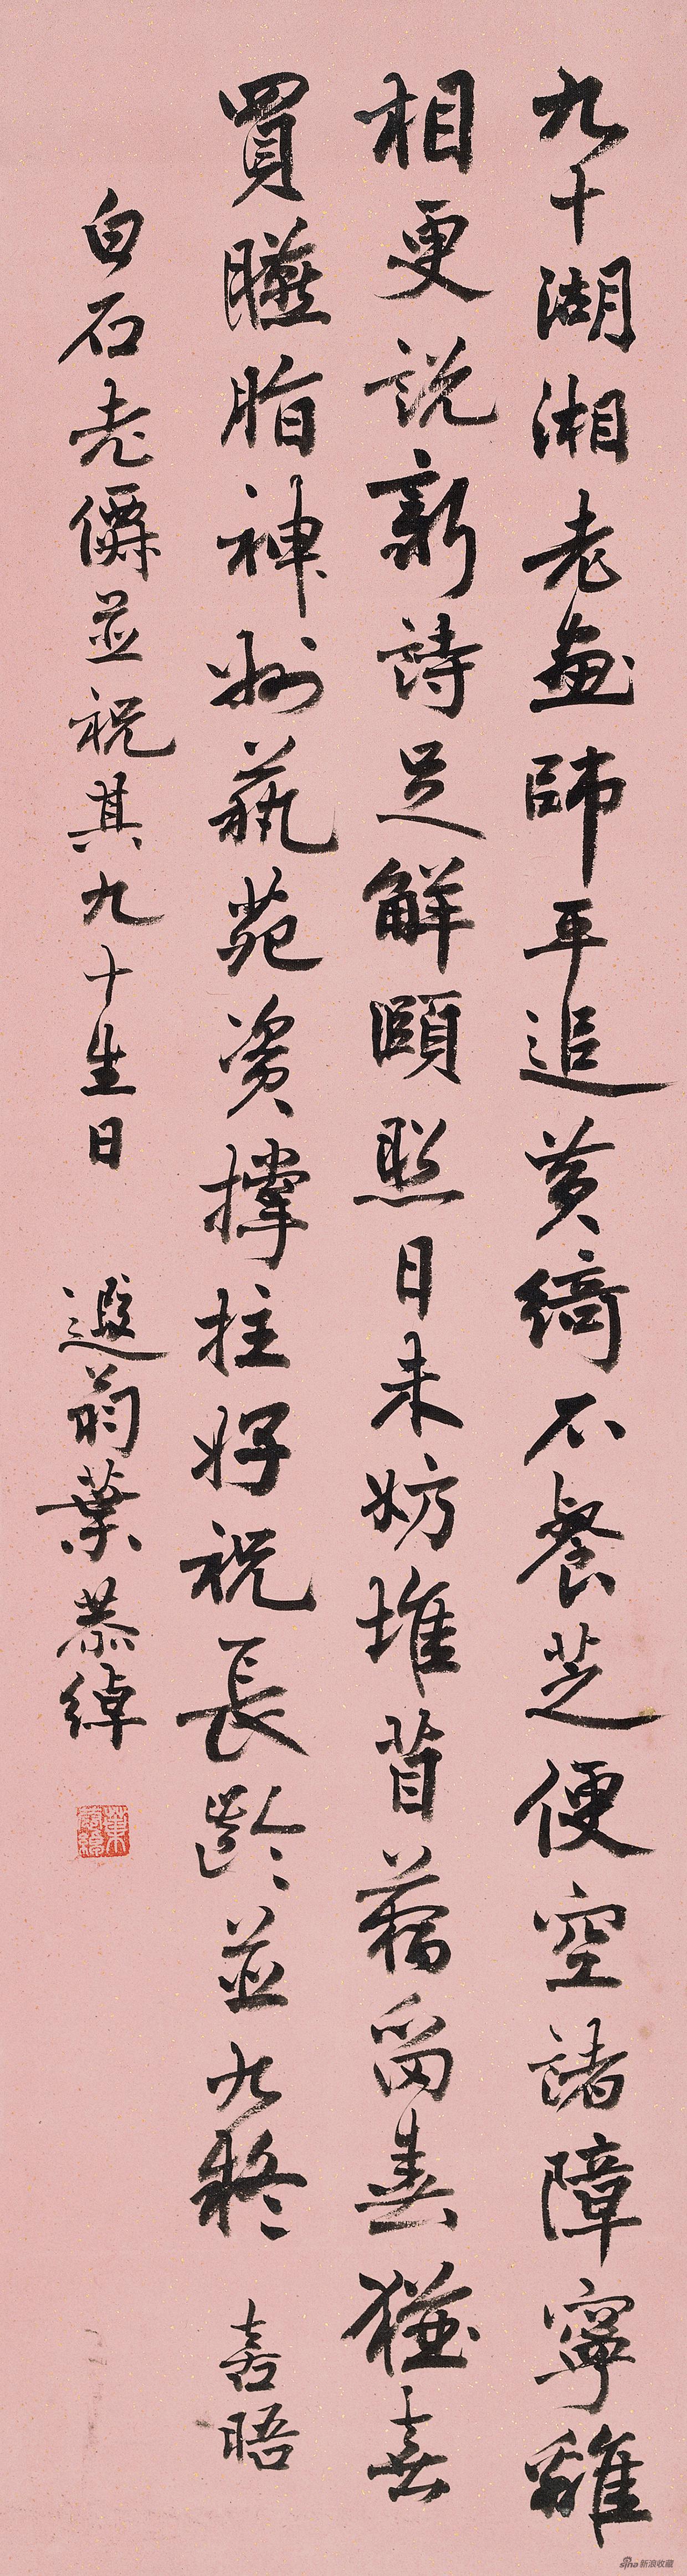 九十湖湘老畫師平追黃綺不餐芝便空諸障寧離
相更說新詩足解頤照日未妨堆苜蓿留春猶喜
買臙脂神州藝苑資撐拄好祝長齡並九疑 喜晤
白石老僊並祝其九十生日 遐翁葉恭綽
葉恭綽
sina 新浪收藏